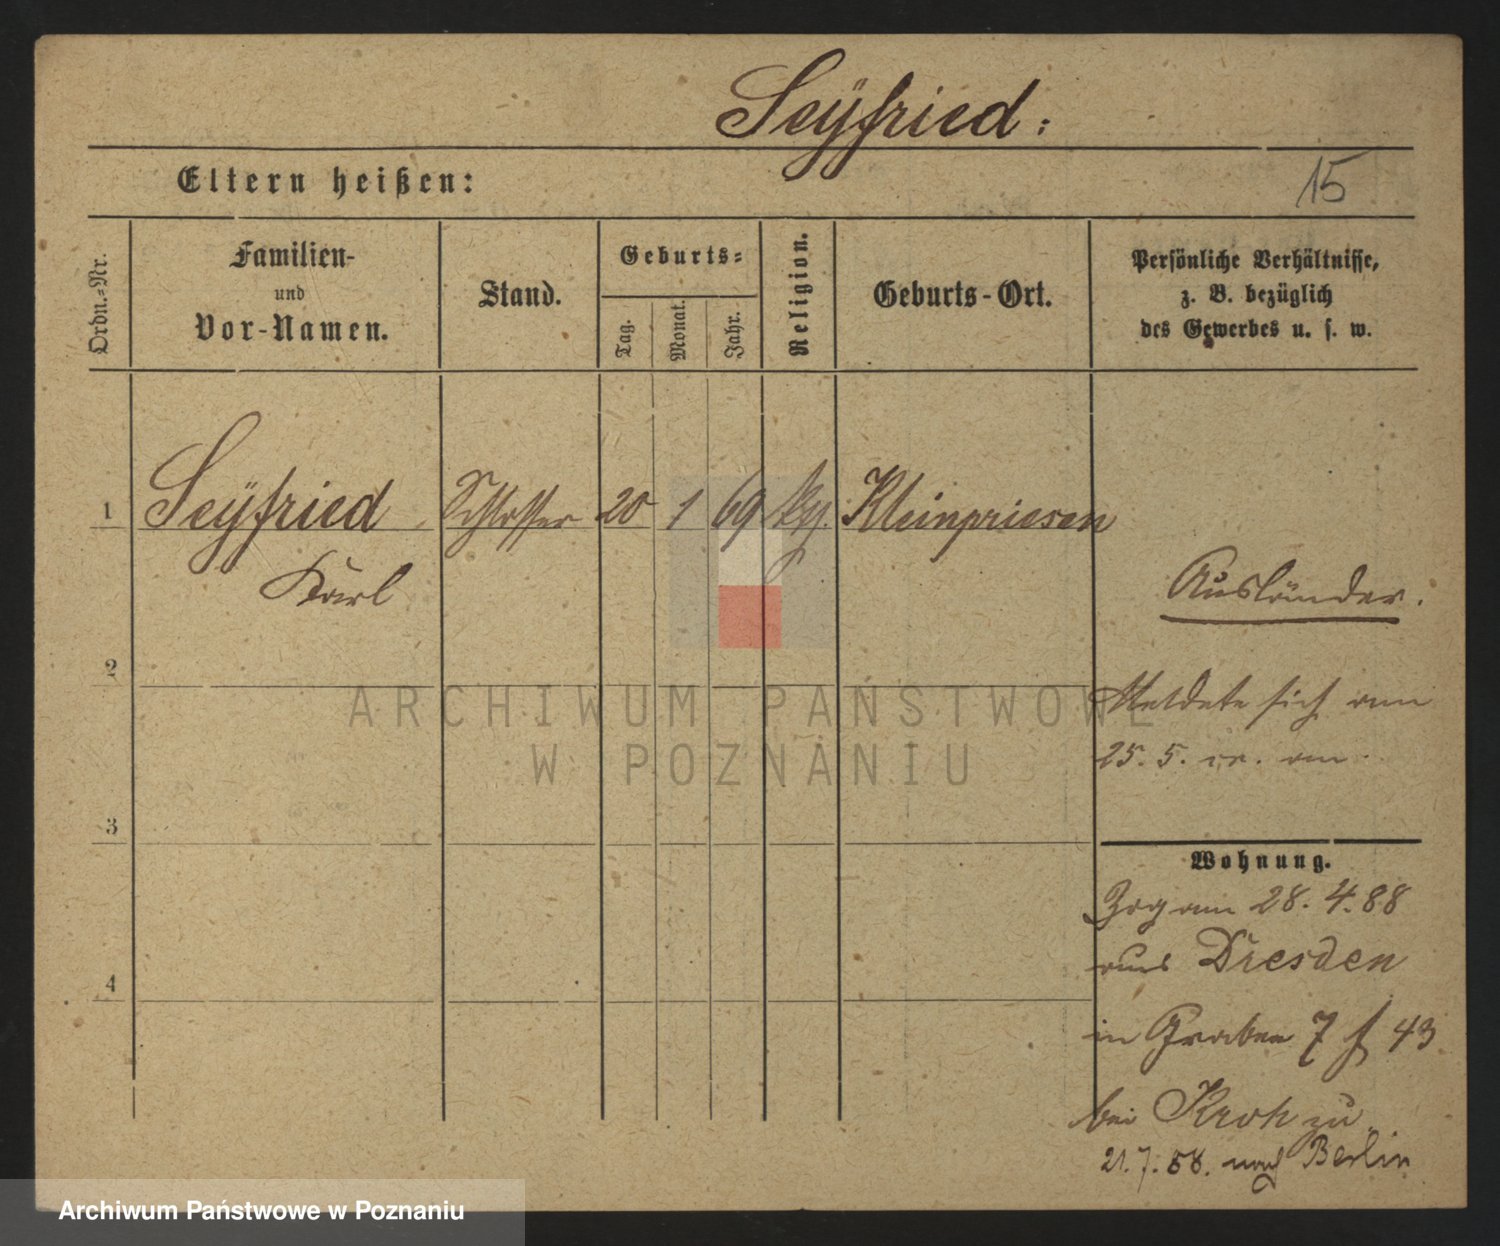 Seÿfried:
Eltern heißen:
15
Ordn.-Nr.
Familien-
und
Vor-Namen.
Stand.
Geburts-
Tag.
Monat.
Jahr.
Religion.
Geburts-Ort.
Persönliche Verhältnisse,
z. B. bezüglich
des Gewerbes u. s. w.
1 Seÿfried Schlosser 20 1 69 Kleinpriesen
Karl
Ausländer.
2
Meldete sich am
25. 5. cr. an.
3
Wohnung.
Zog am 28. 4. 88
aus Dresden
4
in Graben 7 f 43
bei Kroh zu
21. 7. 88. nach Berlin
ARCHIWUM PAŃSTWOWE
W POZNANIU
Archiwum Państwowe w Poznaniu